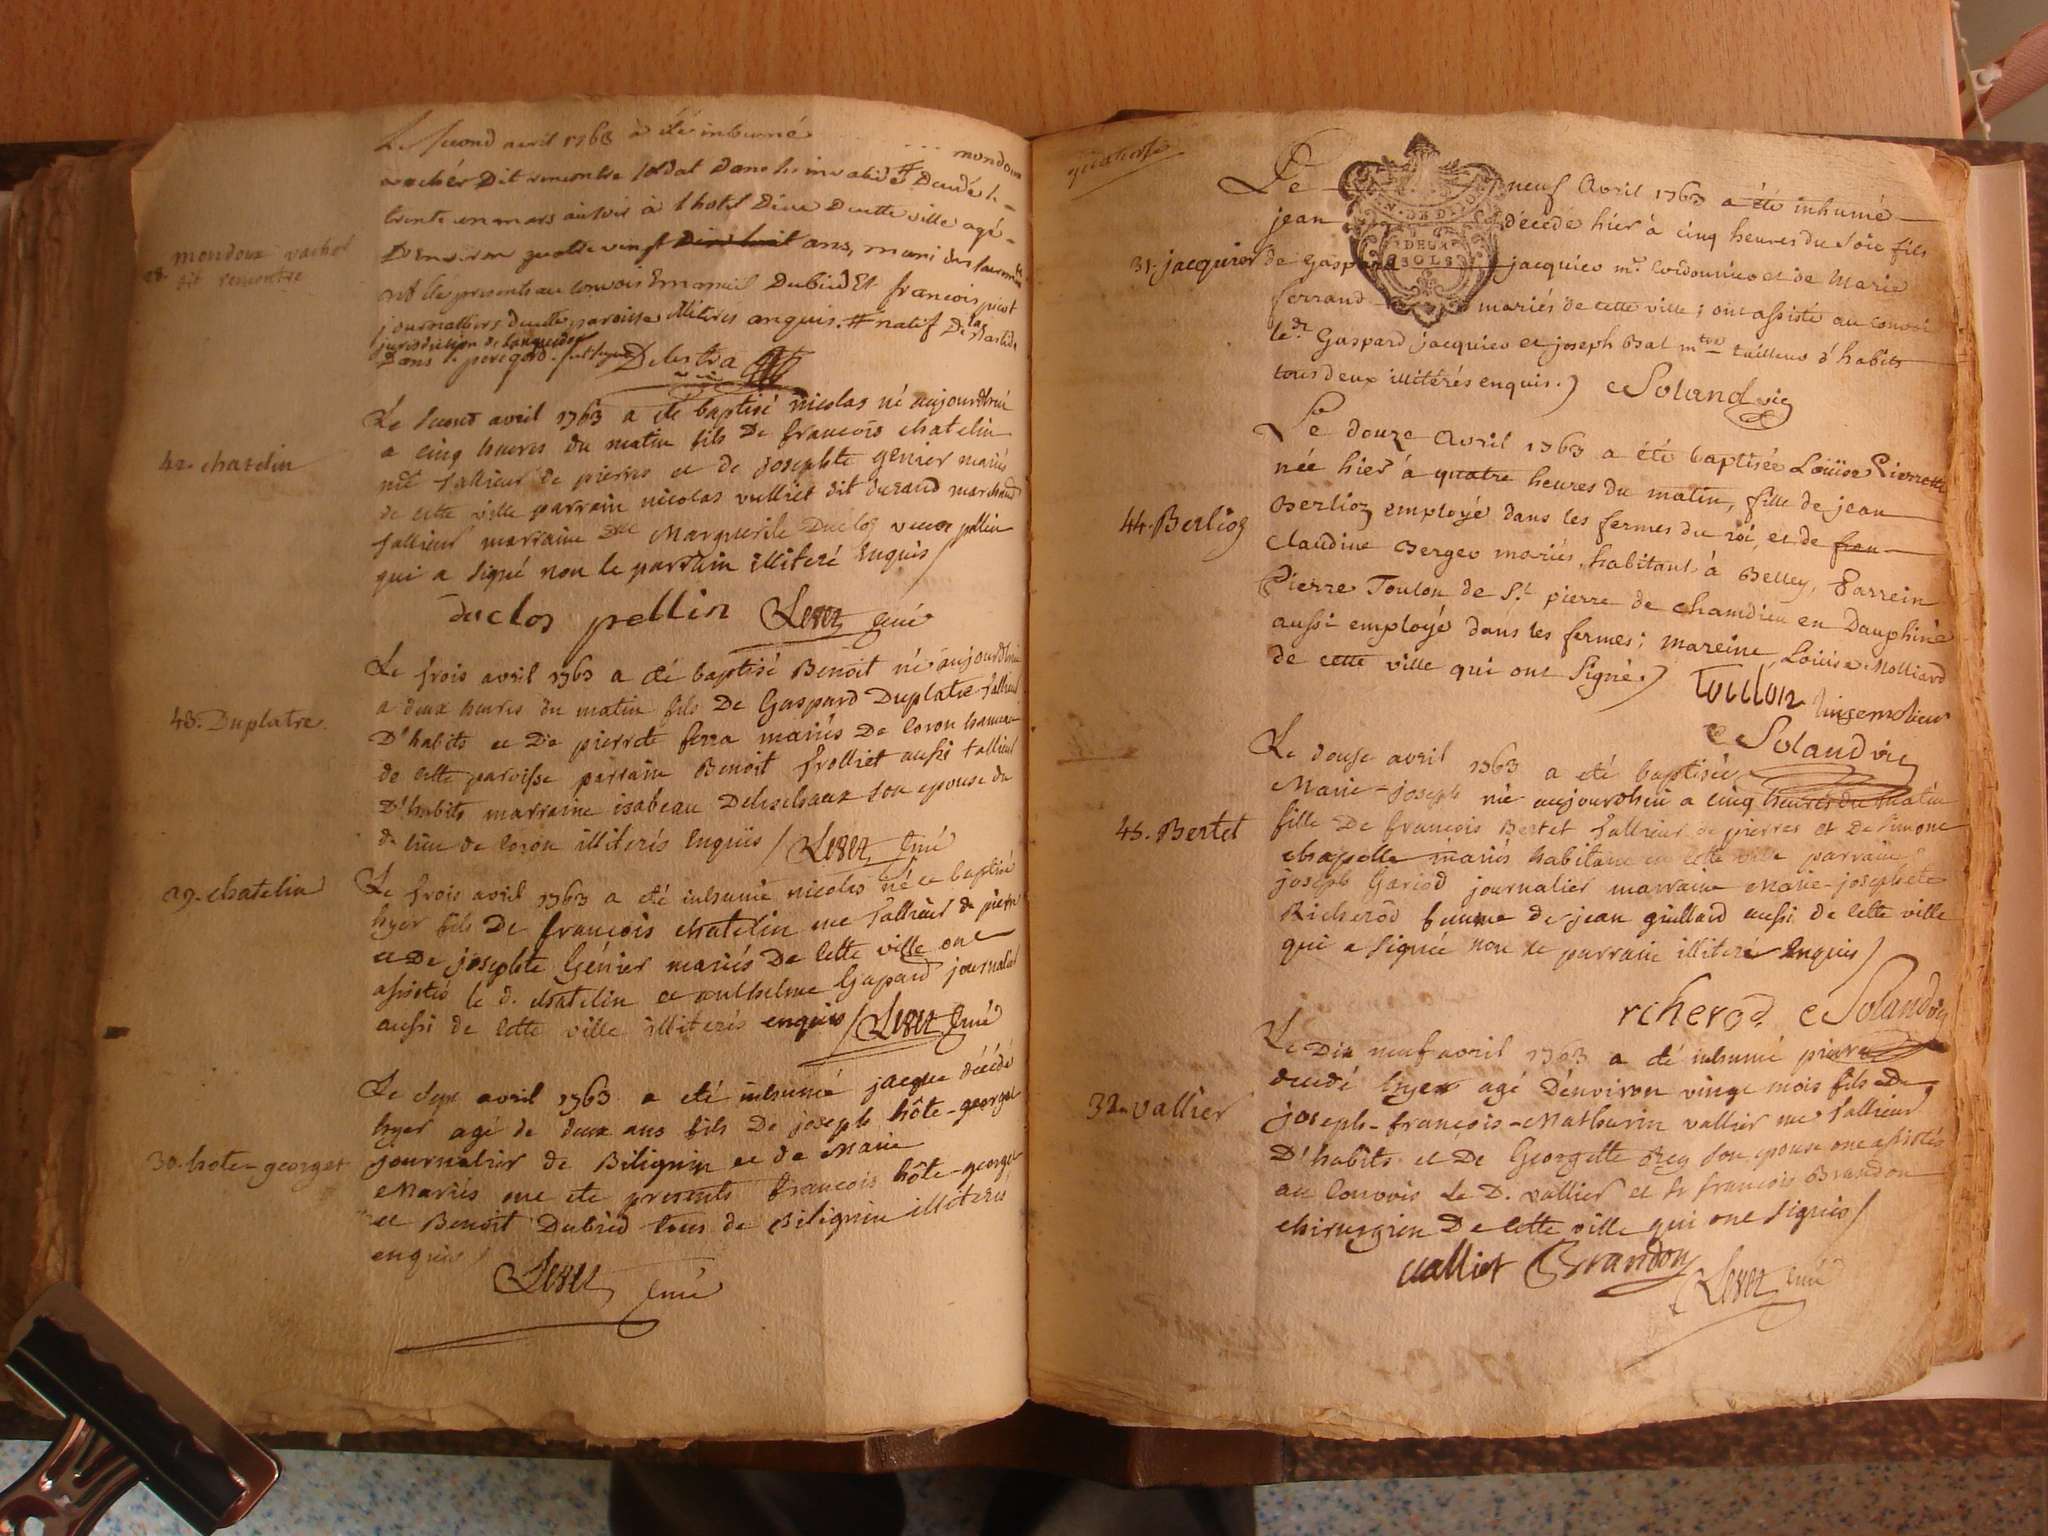 Le second avril 1763 à été inhumé
mondoux
vachér Dit rencontre soldat Dans les invalides # Decedé le
trente en mars au soir à l'hotel Dieu De cette ville agé
D'environ quatre vingt Dix huit ans, mari
ont été presents au convois Emanuel Dubied Et francois picot
journalliers De cette paroisse illitérés enquis. # natif De la Bastide
jurisdiction de
Dans le perigord
Delestra
28. mondoux vachér
dit rencontre
Le second avril 1763 a eté baptisé nicolas né aujourd'hui
a cinq heures du matin fils De francois chatelin
me tallieur de pierres et de josephte genier mariés
de cette ville parrain nicolas vulliet dit durand marchand
tallieur marraine Dlle Marguerite Duclos veuve pellin
qui a signé non le parrain illiteré Enquis /
duclos pellin Curé
42. chatelin
Le trois avril 1763 a été baptisé Benoit né aujourd'hui
a deux heures du matin fils De Gaspard Duplatre tallieur
D'habits et De pierrete ferra mariés De Coron hameau
de cette paroisse parrain Benoit frolliet aussi tallieur
D'habits marraine isabeau son epouse du
d. lieu de Coron illiterés Enquis / Curé
43. Duplatre.
Le trois avril 1763 a eté inhumé nicolas né et baptisé
hyer fils De francois chatelin me tallieur de pierre
et De josephte Génier mariés De cette ville ont
assistés le d. chatelin et anthelme Gapard journalier
aussi de cette ville illiterés enquis / Curé
29. chatelin
Le sept avril 1763 a eté inhumé jacque décédé
hyer agé de deux ans fils De joseph hôte-georget
journalier de Bilignin et de Marie
Mariés ont eté presents francois hôte-georget
et Benoit Dubied tous de Bilignin illiterés
enquis /
Curé
30. hote-georget
quatorse
DEUX
SOLS
Le neuf Avril 1763 a été inhumé
jean décédé hier à cinq heures du Soir fils
de Gaspard jacquier me. Cordonnier et de Marie
ferrand mariés de cette ville; ont assisté au convoi
le dt. Gaspard jacquier et joseph Bal mtre tailleur d'habits
tous deux illitérés enquis.) Soland vic
31. jacquier
Le douze Avril 1763 a été baptisée Loüise Pierrette
née hier à quatre heures du matin, fille de jean
Berlioz employé dans les fermes du roi, et de fran
Claudine Berger mariés, habitant à Belley, Parrein
Pierre Toulon de St. pierre de chamdieu en Dauphiné
aussi employé dans les fermes; mareine, Louise Molliard
de cette ville qui ont Signé.) Toullon
Soland vic
44. Berlioz
Le douse avril 1763 a eté baptisée
Marie-joseph née aujourdhui a cinq heures du matin
fille De francois Bertet tallieur de pierres et De Simone
chapelle mariés habitant en cette ville parrain
joseph Gariod journalier marraine Marie-josephte
Richerod femme de jean guillard aussi de cette ville
qui a signée non le parrain illiteré Enquis /
rcherod Soland vic
45. Bertet
Le Dix neuf avril 1763 a été inhumé pierre
decedé hyer agé D'environ vingt mois fils De
joseph-françois-Mathurin vallier me tallieur
D'habits et De Georgette Rey son epouse ont assistés
au Convois Le D. vallier et Sr francois Brandon
chirurgien De cette ville qui ont signés /
vallier Brandon
Curé
32. vallier